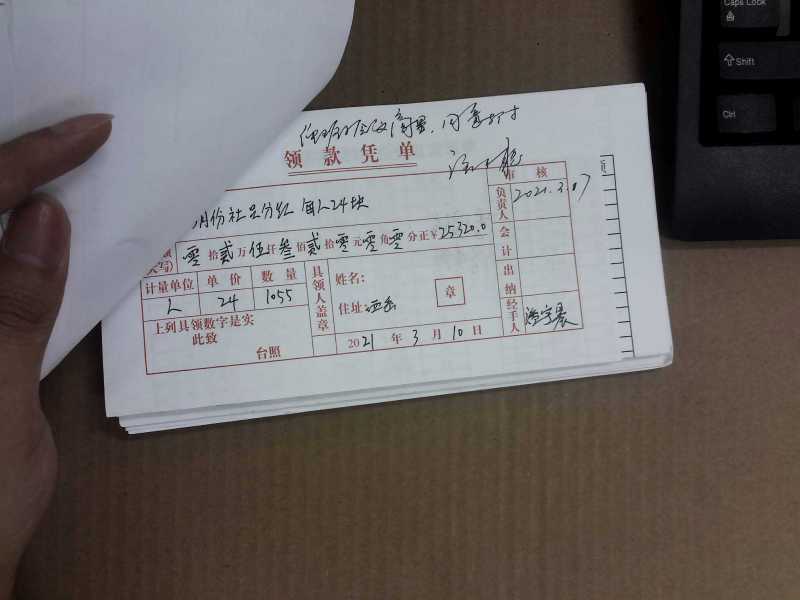 Caps Lock
Shift
Ctrl
同意支付
领款凭单
审核
月份社员分红 每人24块
负责人
2021.3.07
大写)
零拾贰万伍仟叁佰贰拾零元零角零分正¥25320.0
会计
计量单位 单价 数量
人 24 1055
具领人盖章
姓名:
住址:
章
出纳
上列具领数字是实
此致
台照
2021年3月10日
经手人